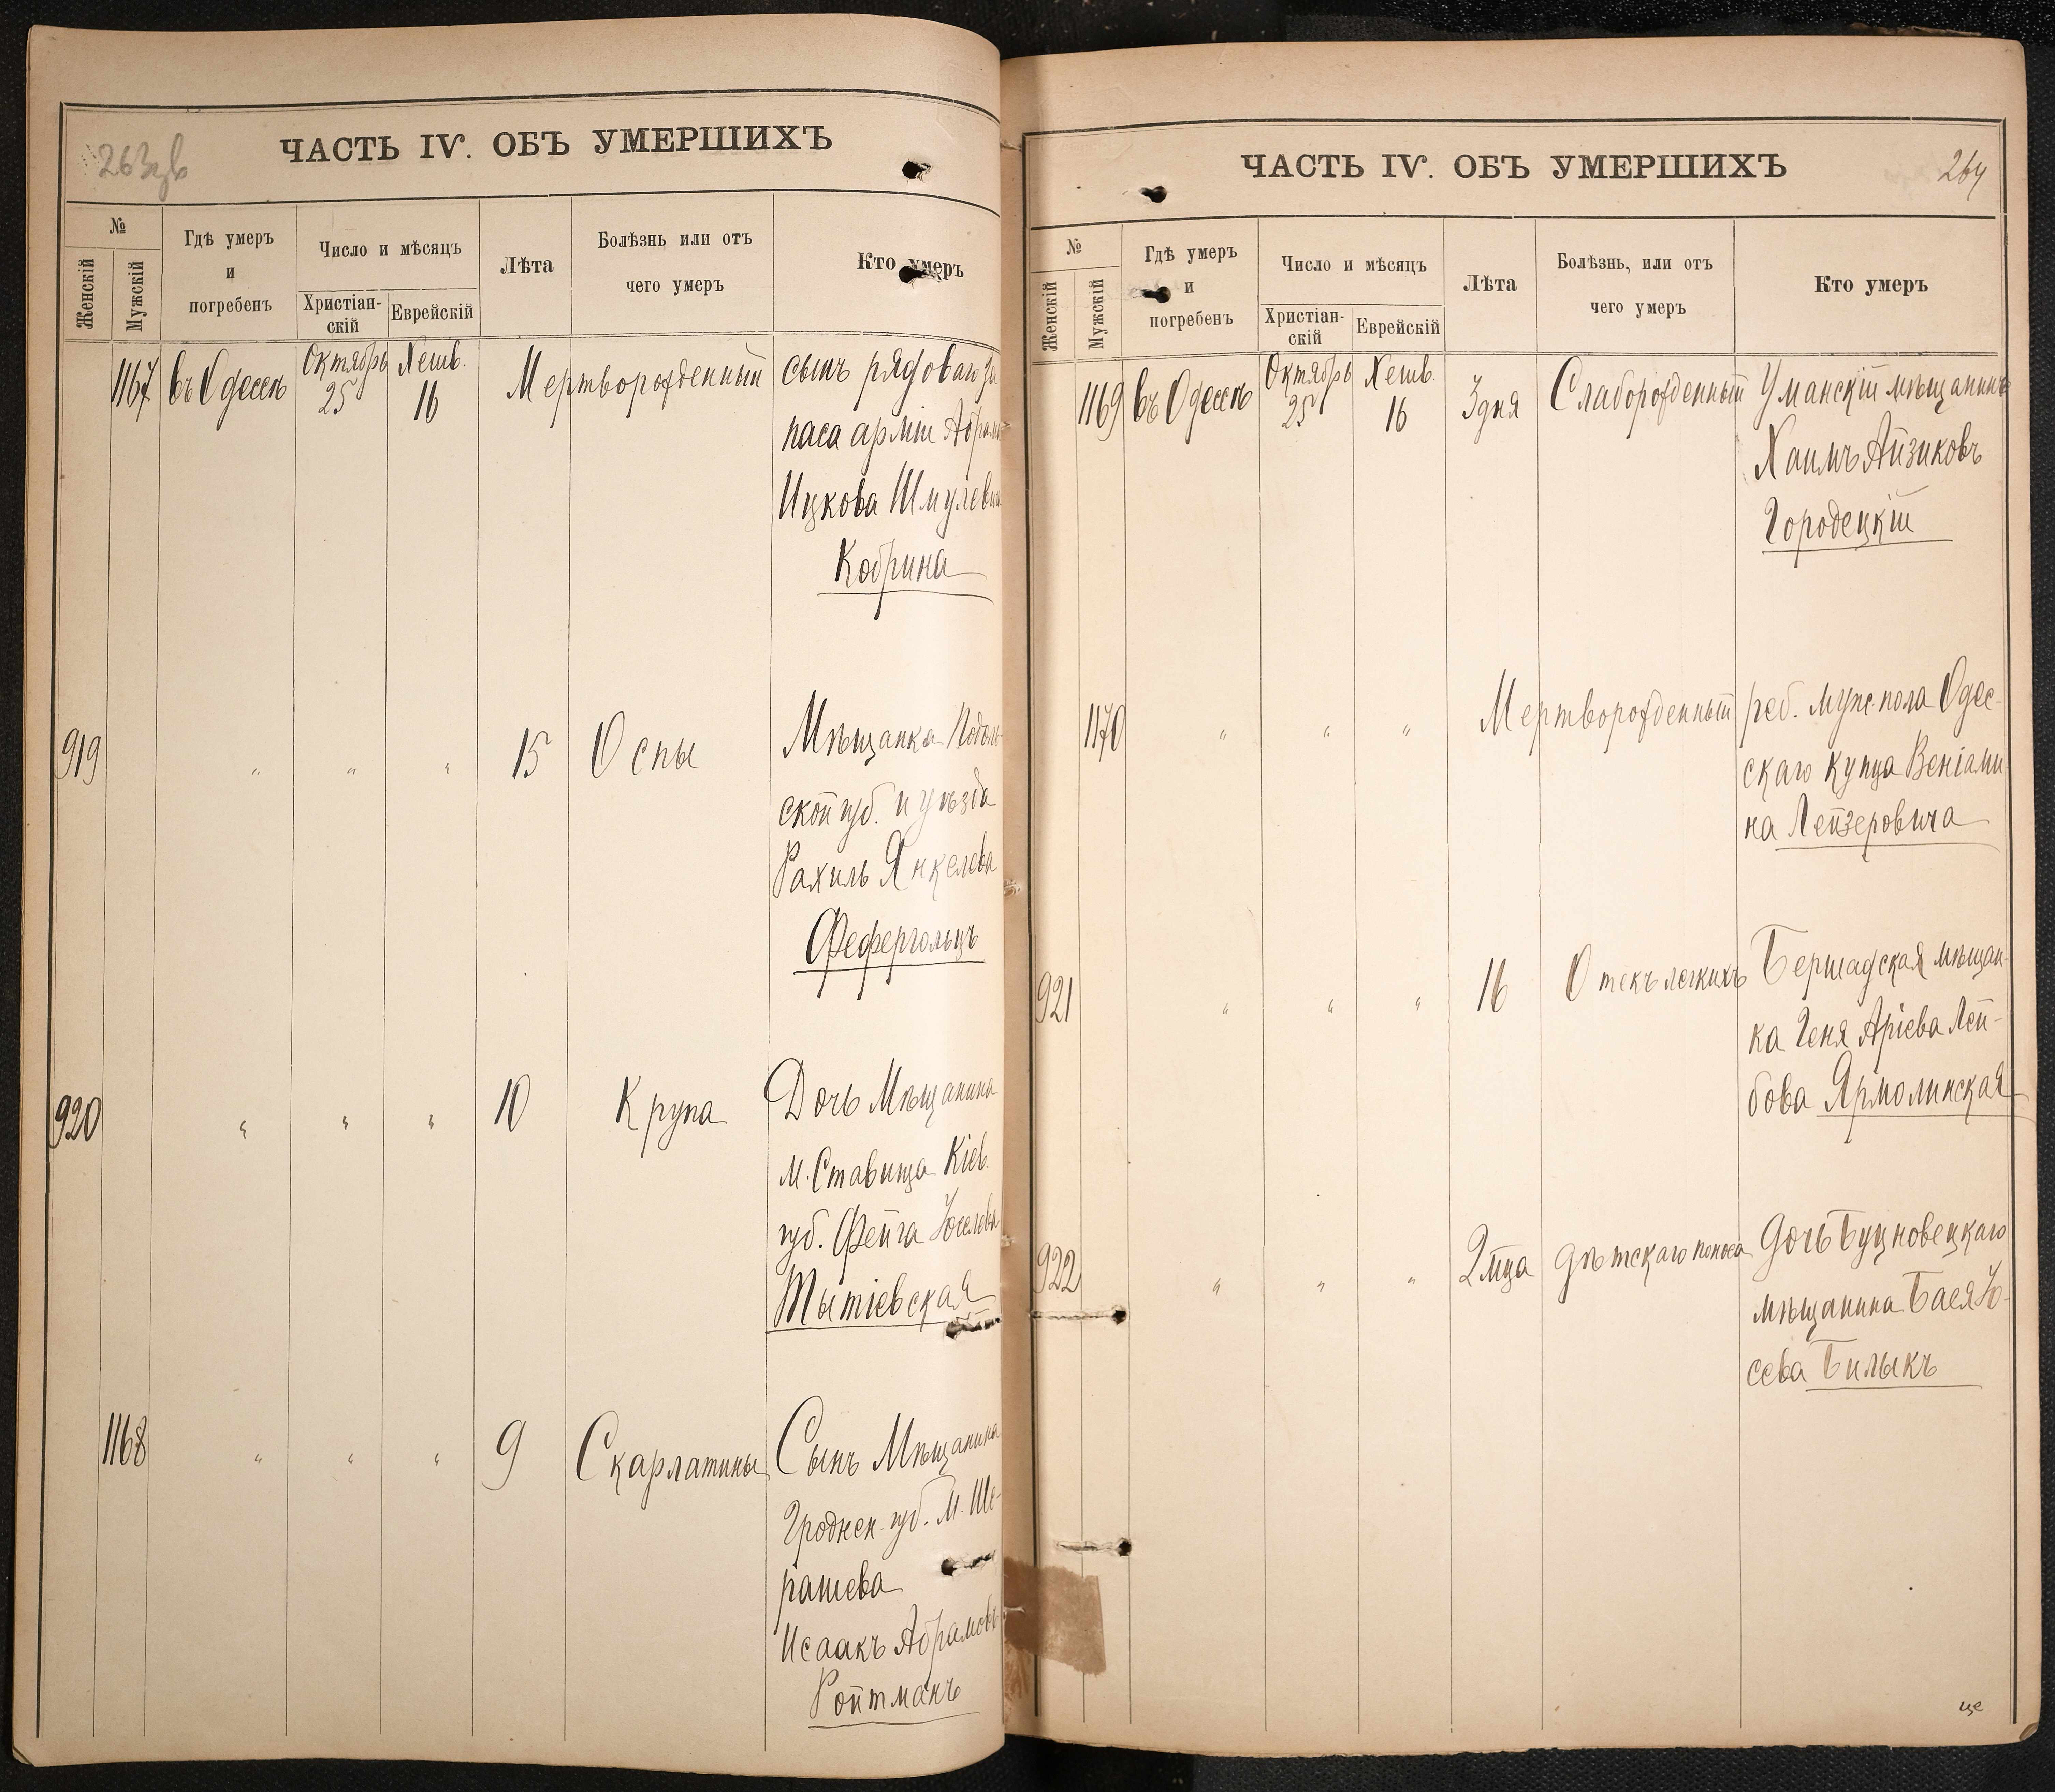 263
ЧАСТЬ IV. ОБЪ УМЕРШИХЪ
№
Женскій
Мужскій
Гдѣ умеръ
и
погребенъ
Число и мѣсяцъ
Христіан-
скій
Еврейскій
Лѣта
Болѣзнь или отъ
чего умеръ
Кто умеръ
1167 въ Одессѣ Октябрь 25 Хешв. 16 Мертворожденный сынъ рядоваго за
паса арміи Абрама
Ицкова Шмулевича
Кобрина
919 " " " 15 Оспы Мѣщанка Подоль-
ской губ. и уѣзда
Рахиль Янкелева
Фефергольцъ
920 " " " 10 Крупа Дочь Мѣщанина
м. Ставища Кіев.
губ. Фейга Іоселева
Тытіевская
1168 " " " 9 Скарлатины Сынъ Мѣщанина
Гроднен. губ. М. Ше-
рашева
Исаакъ Абрамовъ
Ройтманъ
ЧАСТЬ IV. ОБЪ УМЕРШИХЪ
264
№
Женскій
Мужскій
Гдѣ умеръ
и
погребенъ
Число и мѣсяцъ
Христіан-
скій
Еврейскій
Лѣта
Болѣзнь, или отъ
чего умеръ
Кто умеръ
1169 въ Одессѣ Октябрь 25 Хешв. 16 3 дня Слаборожденный Уманскій мѣщанинъ
Хаимъ Айзиковъ
Городецкій
1170 " " " Мертворожденный реб. муж. пола Одес-
скаго купца Веніами
на Лейзеровича
921 " " " 16 Отекъ легкихъ Бершадская мѣщан-
ка Геня Аріева Лей-
бова Ярмолинская
922 " " " 2 мца Дѣтскаго поноса Дочь Буцновецкаго
мѣщанина Бася Іо-
сева Билыкъ
це